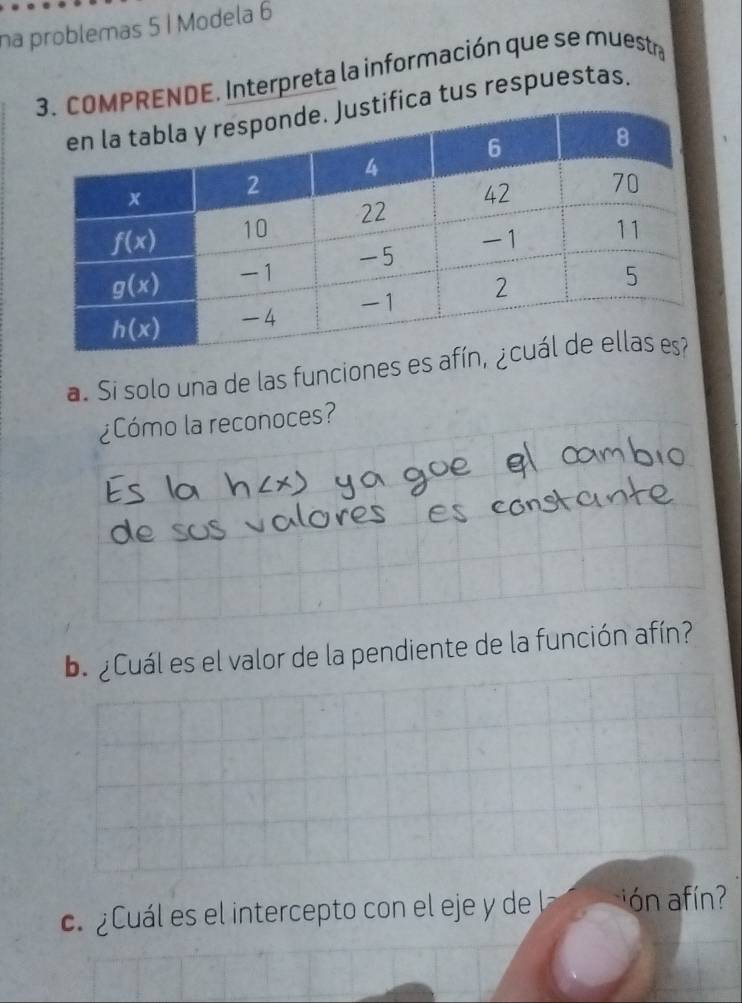 na problemas 5 | Modela 6
3. COMPRENDE. Interpreta la información que se muestra
en la tabla y responde. Justifica tus respuestas.
x 2 4 6 8
f(x) 10 22 42 70
g(x) −1 −5 −1 11
h(x) −4 −1 2 5
a. Si solo una de las funciones es afín, ¿cuál de ellas es?
¿Cómo la reconoces?
Es la h(x) ya que el cambio
de sus valores es constante
b. ¿Cuál es el valor de la pendiente de la función afín?
c. ¿Cuál es el intercepto con el eje y de la ión afín?